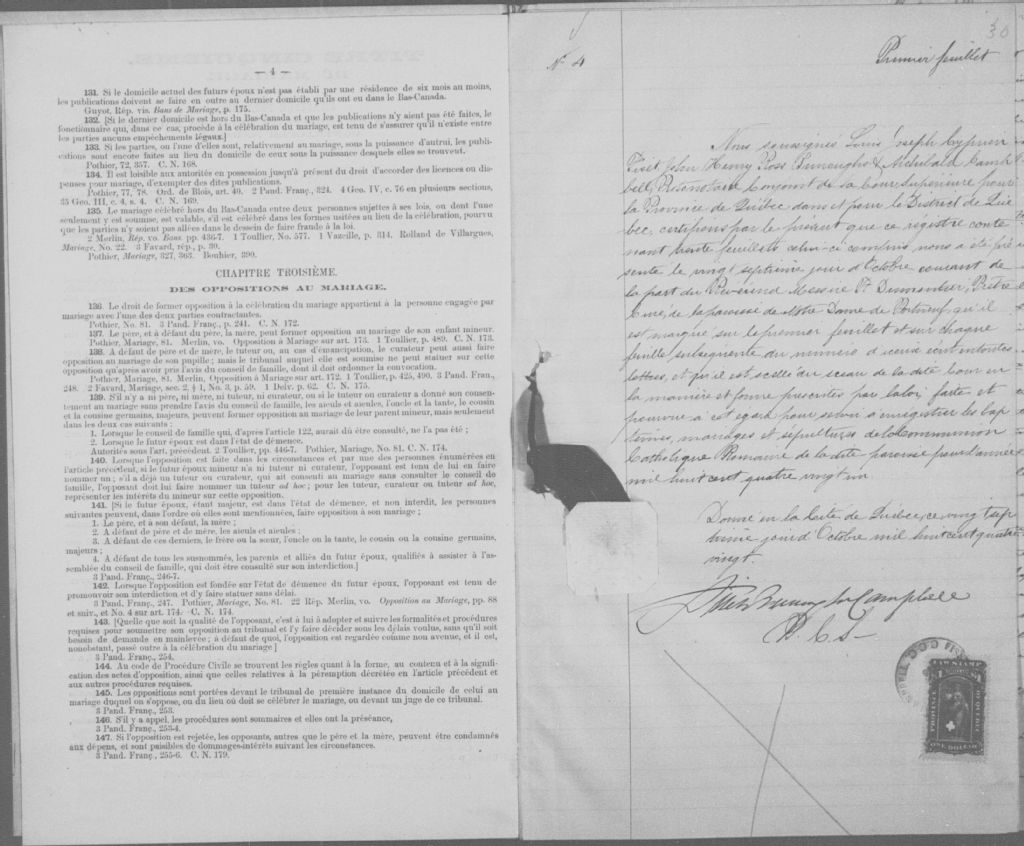 — 4 —
131. Si le domicile actuel des futurs époux n'est pas établi par une résidence de six mois au moins,
les publications doivent se faire en outre au dernier domicile qu'ils ont eu dans le Bas-Canada.
Guyot, Rép. vis. Bans de Mariage, p. 175.
132. [Si le dernier domicile est hors du Bas-Canada et que les publications n'y aient pas été faites, le
fonctionnaire qui, dans ce cas, procède à la célébration du mariage, est tenu de s'assurer qu'il n'existe entre
les parties aucuns empêchements légaux.]
133. Si les parties, ou l'une d'elles sont, relativement au mariage, sous la puissance d'autrui, les publi-
cations sont encore faites au lieu du domicile de ceux sous la puissance desquels elles se trouvent.
Pothier, 72, 357. C. N. 168.
134. Il est loisible aux autorités en possession jusqu'à présent du droit d'accorder des licences ou dis-
penses pour mariage, d'exempter des dites publications.
Pothier, 77, 78. Ord. de Blois, art. 40. 2 Pand. Franç., 324. 4 Geo. IV, c. 76 en plusieurs sections,
35 Geo. III, c. 4, s. 4. C. N. 169.
135. Le mariage célébré hors du Bas-Canada entre deux personnes sujettes à ses lois, ou dont l'une
seulement y est soumise, est valable, s'il est célébré dans les formes usitées au lieu de la célébration, pourvu
que les parties n'y soient pas allées dans le dessein de faire fraude à la loi.
2 Merlin, Rép. vo. Bans. pp. 436-7. 1 Toullier, No. 577. 1 Vazeille, p. 314. Rolland de Villargues,
Mariage, No. 22. 3 Favard, rép., p. 30.
Pothier, Mariage, 327, 363. Bouhier, 390.
CHAPITRE TROISIÈME.
DES OPPOSITIONS AU MARIAGE.
136. Le droit de former opposition à la célébration du mariage appartient à la personne engagée par
mariage avec l'une des deux parties contractantes.
Pothier, No. 81. 3 Pand. Franç., p. 241. C. N. 172.
137. Le père, et à défaut du père, la mère, peut former opposition au mariage de son enfant mineur.
Pothier, Mariage, 81. Merlin, vo. Opposition à Mariage sur art. 173. 1 Toullier, p. 489. C. N. 173.
138. A défaut de père et de mère, le tuteur ou, au cas d'émancipation, le curateur peut aussi faire
opposition au mariage de son pupille; mais le tribunal auquel elle est soumise ne peut statuer sur cette
opposition qu'après avoir pris l'avis du conseil de famille, dont il doit ordonner la convocation.
Pothier, Mariage, 81. Merlin, Opposition à Mariage sur art. 172. 1 Toullier, p. 425, 490. 3 Pand. Fran.,
248. 2 Favard, Mariage, sec. 2, § 1, No. 3, p. 59. 1 Delv. p. 62. C. N. 175.
139. S'il n'y a ni père, ni mère, ni tuteur, ni curateur, ou si le tuteur ou curateur a donné son consen-
tement au mariage sans prendre l'avis du conseil de famille, les aïeuls et aïeules, l'oncle et la tante, le cousin
et la cousine germains, majeurs, peuvent former opposition au mariage de leur parent mineur, mais seulement
dans les deux cas suivants :
1. Lorsque le conseil de famille qui, d'après l'article 122, aurait dû être consulté, ne l'a pas été ;
2. Lorsque le futur époux est dans l'état de démence.
Autorités sous l'art. précédent. 2 Toullier, pp. 446-7. Pothier, Mariage, No. 81. C. N. 174.
140. Lorsque l'opposition est faite dans les circonstances et par une des personnes énumérées en
l'article précédent, si le futur époux mineur n'a ni tuteur ni curateur, l'opposant est tenu de lui en faire
nommer un ; s'il a déjà un tuteur ou curateur, qui ait consenti au mariage sans consulter le conseil de
famille, l'opposant doit lui faire nommer un tuteur ad hoc ; pour les tuteur, curateur ou tuteur ad hoc,
représenter les intérêts du mineur sur cette opposition.
141. [Si le futur époux, étant majeur, est dans l'état de démence, et non interdit, les personnes
suivantes peuvent, dans l'ordre où elles sont mentionnées, faire opposition à son mariage ;
1. Le père, et à son défaut, la mère ;
2. A défaut de père et de mère, les aïeuls et aïeules ;
3. A défaut de ces derniers, le frère ou la sœur, l'oncle ou la tante, le cousin ou la cousine germains,
majeurs ;
4. A défaut de tous les susnommés, les parents et alliés du futur époux, qualifiés à assister à l'as-
semblée du conseil de famille, qui doit être consulté sur son interdiction.]
3 Pand. Franç., 246-7.
142. Lorsque l'opposition est fondée sur l'état de démence du futur époux, l'opposant est tenu de
promouvoir son interdiction et d'y faire statuer sans délai.
3 Pand. Franç., 247. Pothier, Mariage, No. 81. 22 Rép. Merlin, vo. Opposition au Mariage, pp. 88
et suiv., et No. 4 sur art. 174.—C. N. 174.
143. [Quelle que soit la qualité de l'opposant, c'est à lui à adopter et suivre les formalités et procédures
requises pour soumettre son opposition au tribunal et l'y faire décider sous les délais voulus, sans qu'il soit
besoin de demande en mainlevée ; à défaut de quoi, l'opposition est regardée comme non avenue, et il est,
nonobstant, passé outre à la célébration du mariage ]
3 Pand. Franç., 254.
144. Au code de Procédure Civile se trouvent les règles quant à la forme, au contenu et à la signifi-
cation des actes d'opposition, ainsi que celles relatives à la péremption décrétée en l'article précédent et
aux autres procédures requises.
145. Les oppositions sont portées devant le tribunal de première instance du domicile de celui au
mariage duquel on s'oppose, ou du lieu où doit se célébrer le mariage, ou devant un juge de ce tribunal.
3 Pand. Franç., 253.
146. S'il y a appel, les procédures sont sommaires et elles ont la préséance,
3 Pand. Franç., 253-4.
147. Si l'opposition est rejetée, les opposants, autres que le père et la mère, peuvent être condamnés
aux dépens, et sont passibles de dommages-intérêts suivant les circonstances.
3 Pand. Franç., 255-6. C. N. 179.
30
No 4
Premier feuillet
Nous soussignés Louis Joseph Cyprien
Fiset, John Henry Ross Burroughs & Archibald Camp
bell, Protonotaire Conjoint de la Cour Supérieure pour
la Province de Québec dans et pour le District de Qué
bec, certifions par le présent que ce régistre conte
nant trente feuillets celui-ci compris nous a été pré
senté le vingt septième jour d'Octobre courant de
la part du Révérend Messire Dumontier, Prêtre
Curé, de la paroisse de Notre Dame de Portneuf, qu'il
est marqué sur le premier feuillet et sur chaque
feuillet subséquent du numéro d'iceux écrit en toutes
lettres, et qu'il est scellé du sceau de la dite Cour en
la manière et forme prescrites par la loi, faite et
pourvue à cet égard pour servir à enregistrer les Bap
têmes, mariages et sépultures de la Communion
Catholique Romaine de la dite paroisse pour l'année
mil huit cent quatre vingt un.
Donné en la Cité de Québec, ce vingt sep
tième jour d'Octobre mil huit cent quatre
vingt.
Fiset Burroughs & Campbell
P. C. S.
LAW STAMP
PROVINCE OF QUEBEC
ONE DOLLAR